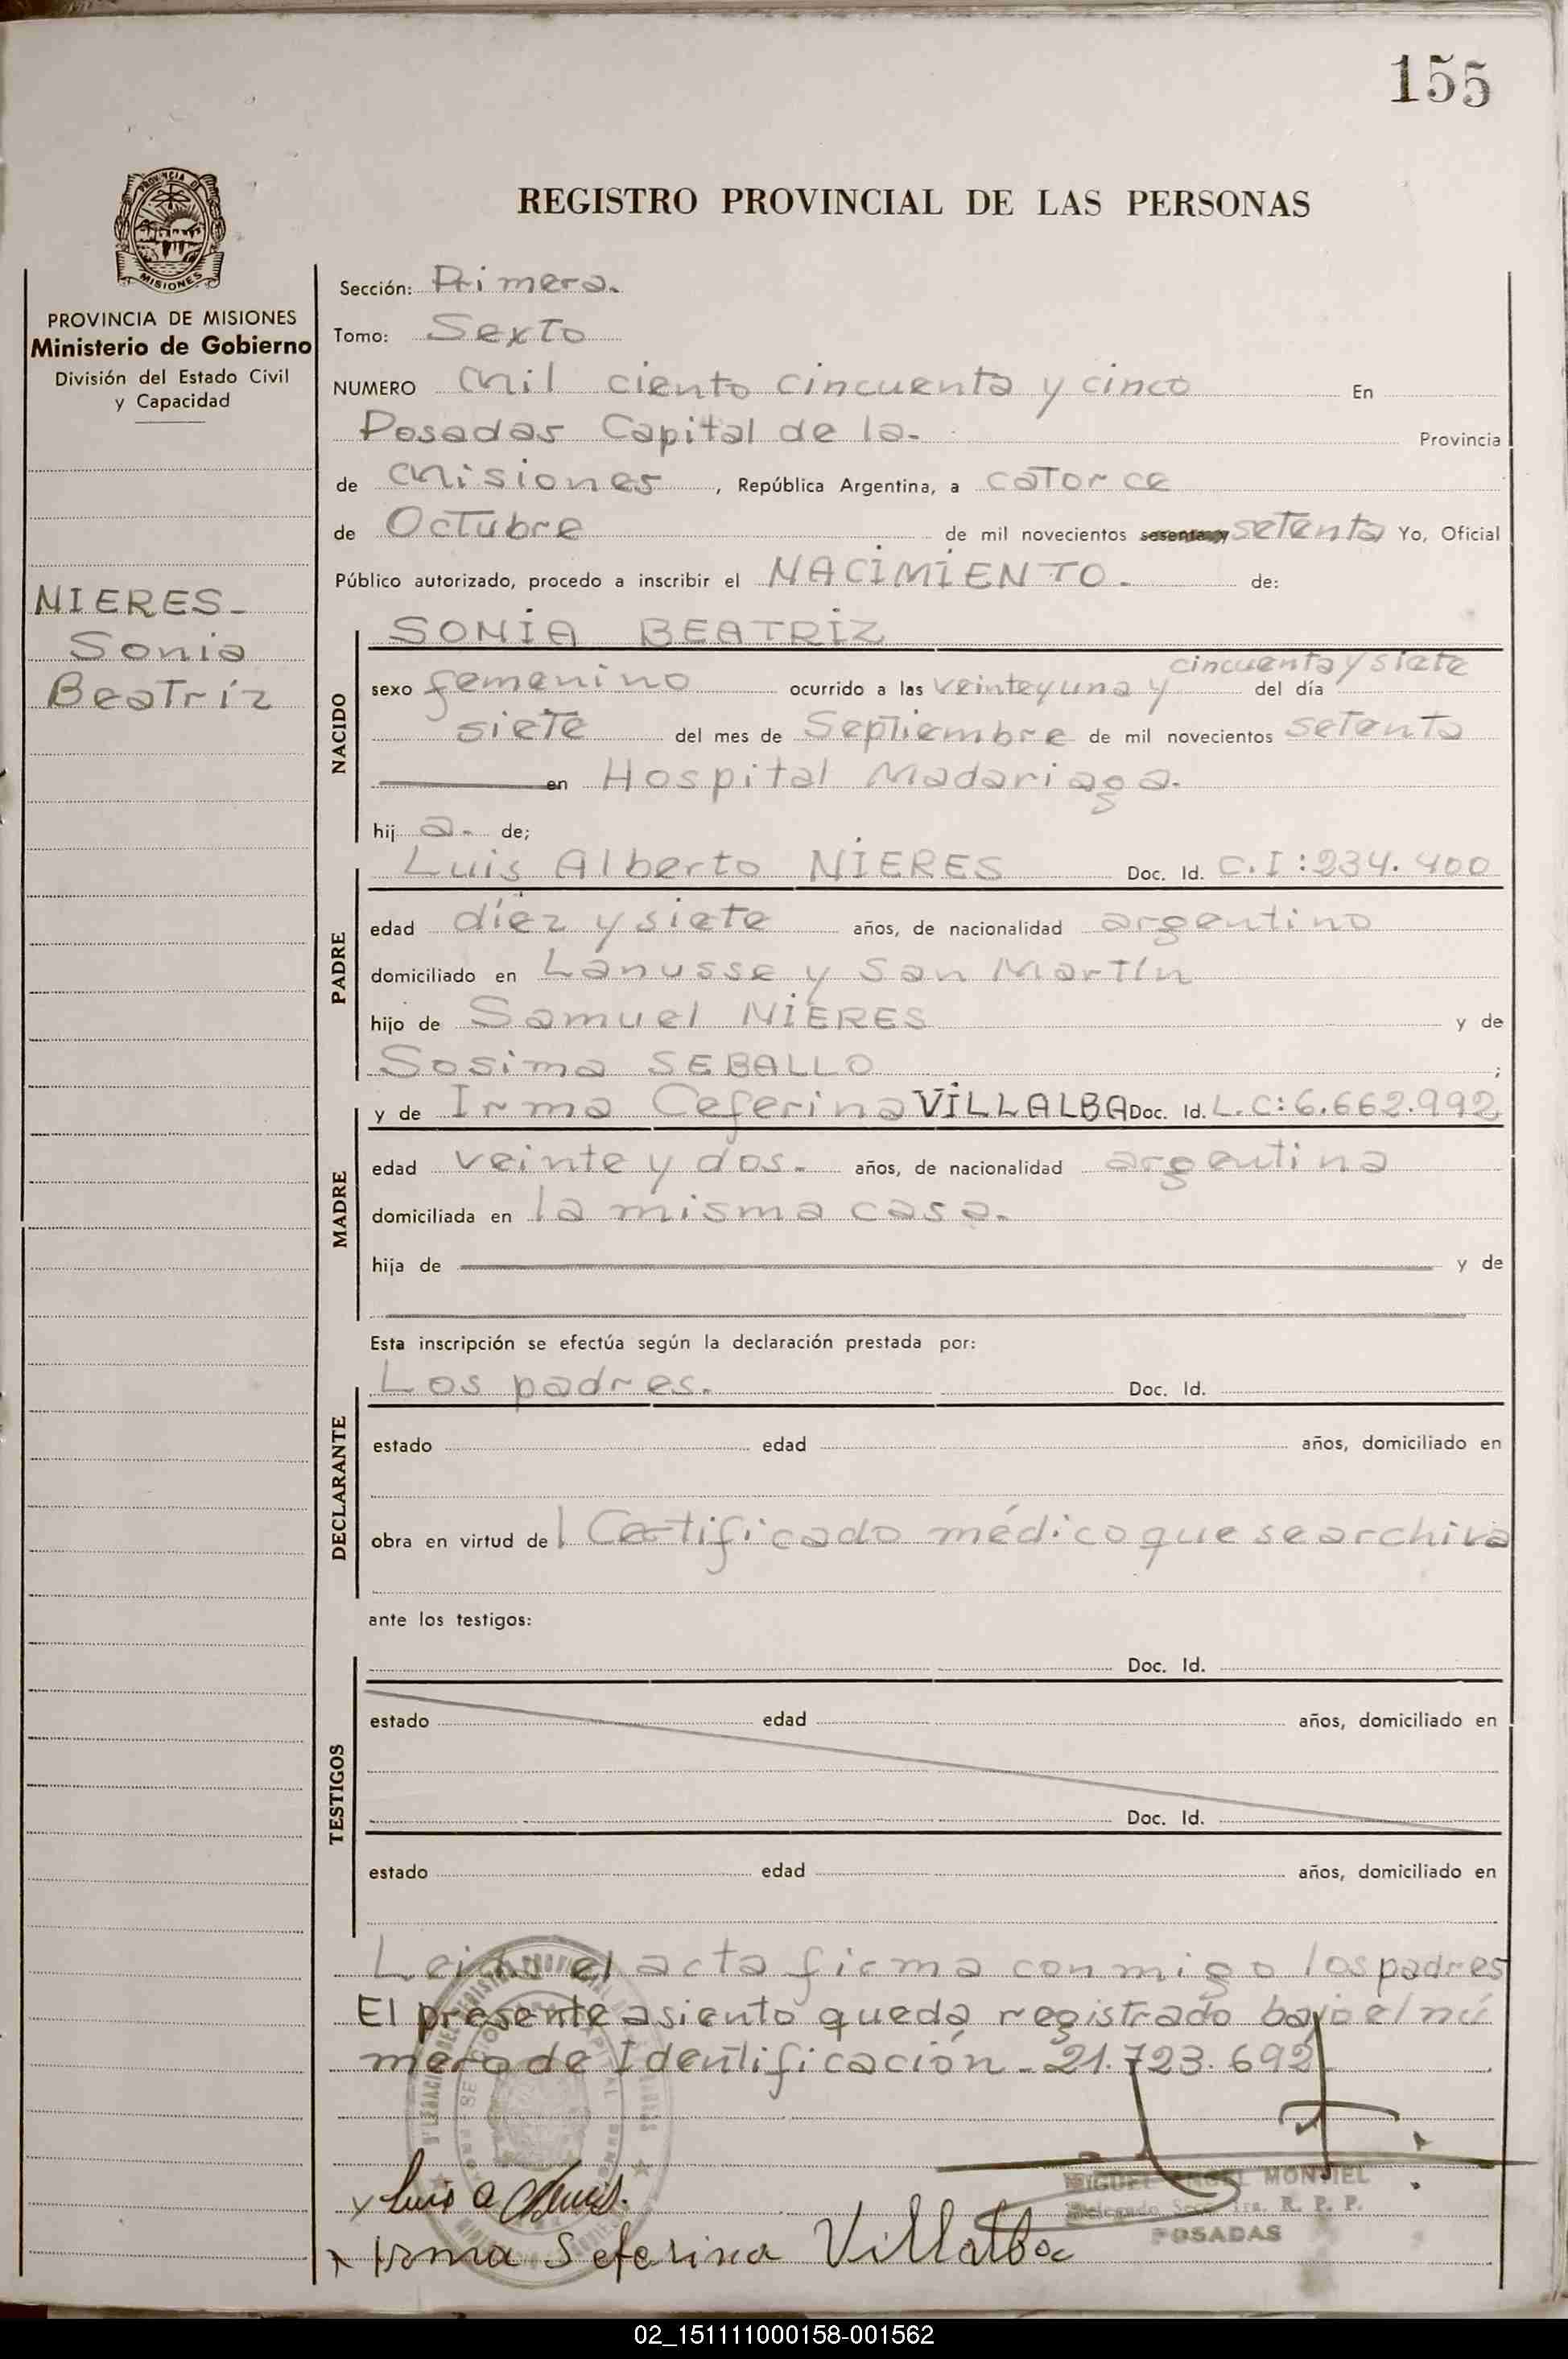 155
REGISTRO PROVINCIAL DE LAS PERSONAS
MISIONES
PROVINCIA DE MISIONES
Ministerio de Gobierno
División del Estado Civil
y Capacidad
NIERES-
Sonia
Beatríz
Sección: Primera.
Tomo: Sexto
NUMERO Mil ciento cincuenta y cinco En
Posadas Capital de la- Provincia
de Misiones, República Argentina, a catorce
de Octubre de mil novecientos sesenta y setenta Yo, Oficial
Público autorizado, procedo a inscribir el NACIMIENTO. de:
NACIDO
SONIA BEATRIZ
cincuenta y siete
sexo femenino ocurrido a las veinte y una y del día
siete del mes de Septiembre de mil novecientos setenta
en Hospital Madariaga.
hij a. de;
PADRE
Luis Alberto NIERES Doc. Id. C.I:234.400
edad diéz y siete años, de nacionalidad argentino
domiciliado en Lanusse y San Martín
hijo de Samuel NIERES y de
Sosima SEBALLO ;
MADRE
y de Irma Ceferina VILLALBA Doc. Id. L.C:6.662.992
edad veinte y dos. años, de nacionalidad argentina
domiciliada en la misma casa.
hija de y de
Esta inscripción se efectúa según la declaración prestada por:
DECLARANTE
Los padres. Doc. Id.
estado edad años, domiciliado en
obra en virtud de l Certificado médico que se archiva
ante los testigos:
TESTIGOS
Doc. Id.
estado edad años, domiciliado en
Doc. Id.
estado edad años, domiciliado en
Leida el acta firma conmigo los padres
El presente asiento queda registrado bajo el nú
mero de Identificación - 21.723.692
MIGUEL ANGEL MONTIEL
Delegado Secc. 1ra. R. P. P.
POSADAS
x Luis A
x Irma Seferina Villalba
02_151111000158-001562